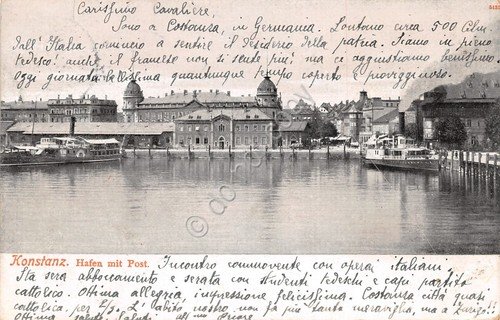 Carissimo Cavaliere,
5151
Sono a Costanza, in Germania. Lontano circa 500 Cilm.
dall'Italia comincio a sentire il desiderio della patria. Siamo in pieno
tedesco! anche il francese non si sente più, ma ci aggustiamo benissimo.
Oggi giornata bellissima quantunque tempo coperto e piovigginoso
Konstanz. Hafen mit Post. Incontro commovente con operai italiani.
Sta sera abboccamento e serata con studenti tedeschi e capi partito
cattolico. Ottima allegria, impressione felicissima. Costanza città quasi
cattolica, per 2/3. L'abito nostro non fa più tanta meraviglia, ma a Zurigo:
ottima saluti. Saluti